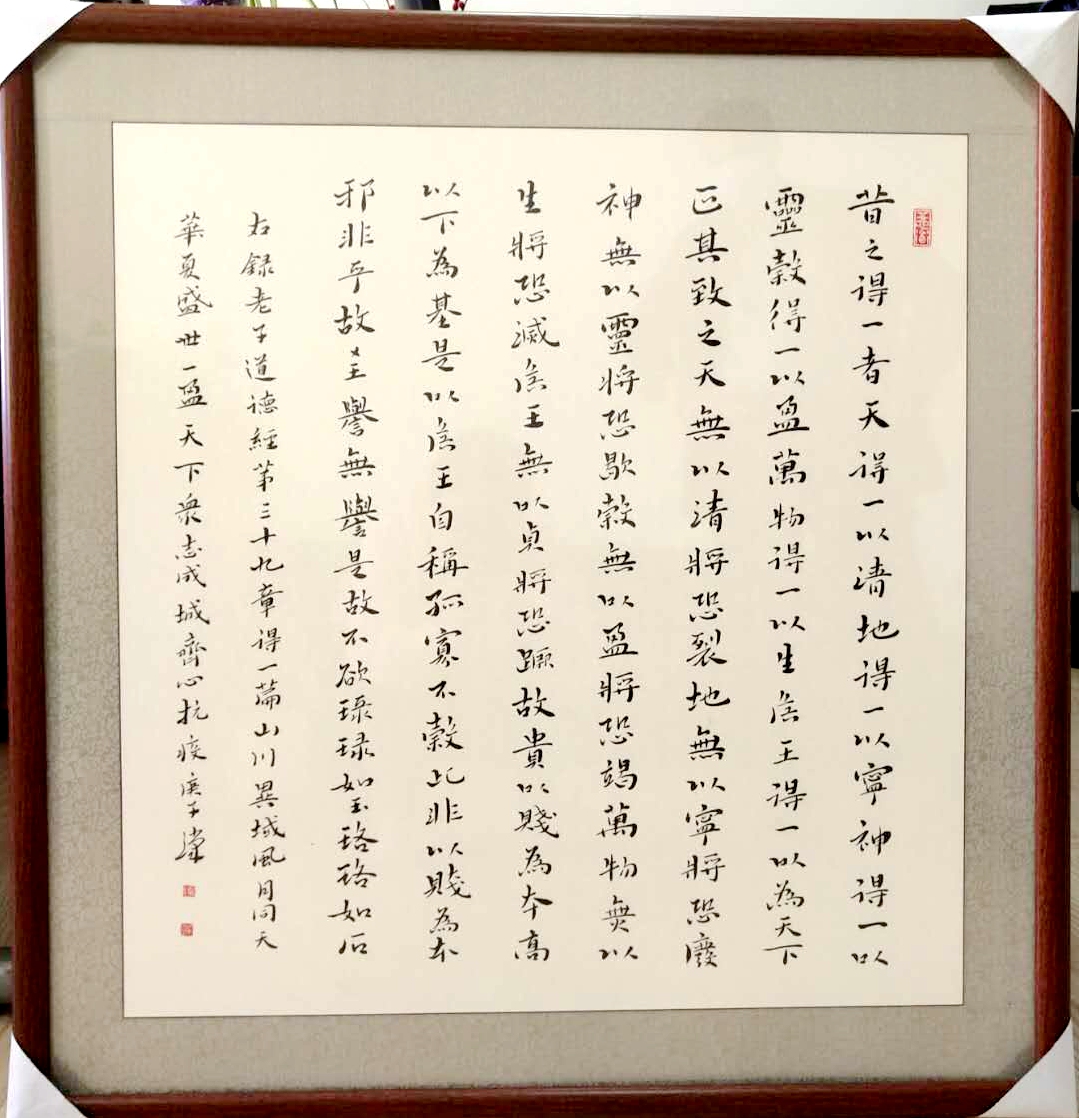 昔之得一者天得一以清地得一以寧神得一以
靈穀得一以盈萬物得一以生矦王得一以為天下
正其致之天無以清將恐裂地無以寧將恐廢
神無以靈將恐歇穀無以盈將恐竭萬物無以
生將恐滅矦王無以貞將恐蹶故貴以賤為本高
以下為基是以矦王自稱孤寡不穀此非以賤為本
邪非乎故至譽無譽是故不欲琭琭如玉珞珞如石
右録老子道德經第三十九章得一篇山川異域風月同天
華夏盛世一盈天下衆志成城齊心抗疫庚子